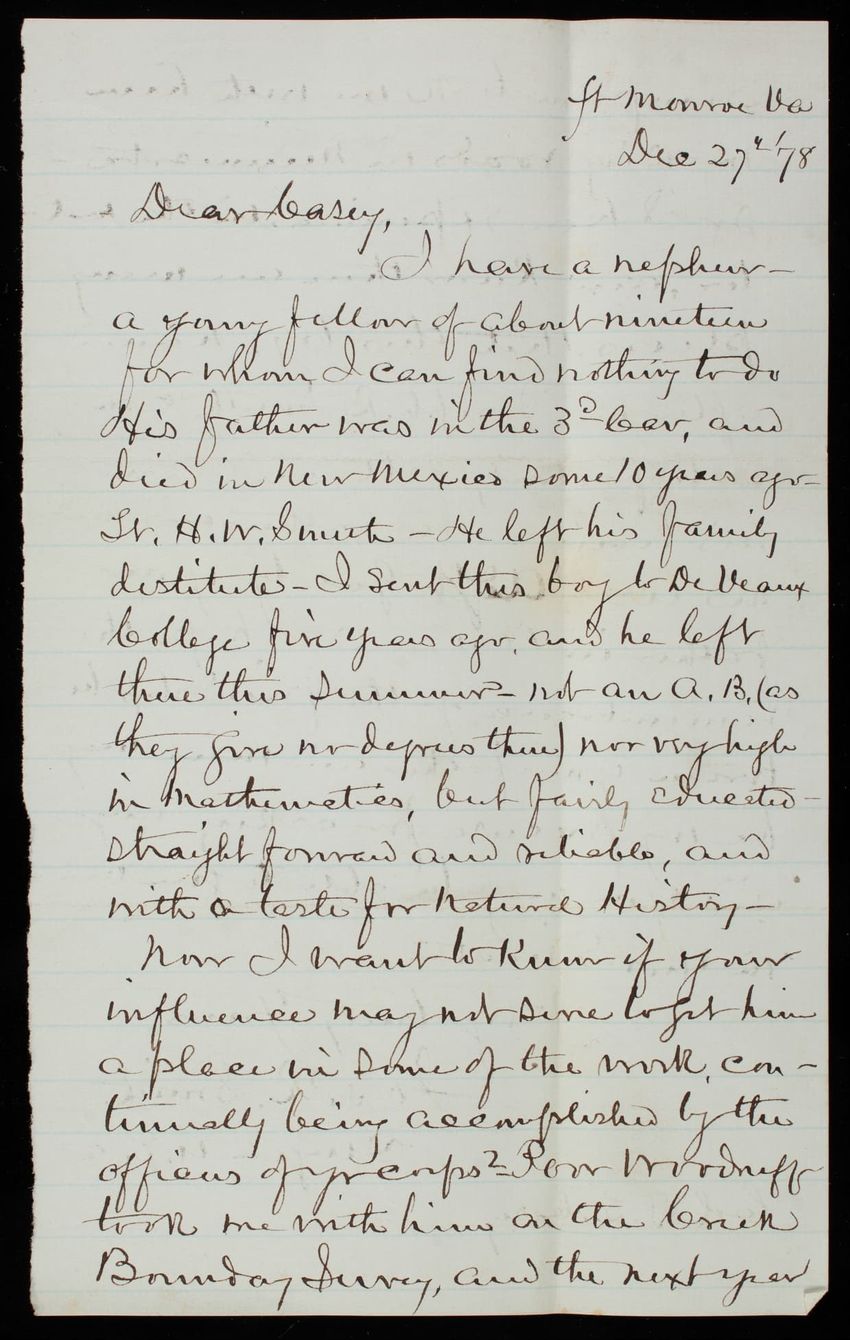 Ft Monroe Va
Dec 27th '78
Dear Casey,
I have a nephew -
a young fellow of about nineteen
for whom I can find nothing to do
His father was in the 3d Cav, and
died in New Mexico some 10 years ago -
Lt. H. W. Smith - He left his family
destitute - I sent this boy to De Veaux
College five years ago, and he left
there this summer - not an A. B. (as
they give no degrees there) nor very high
in Mathematics, but fairly educated -
straight forward and reliable, and
with a taste for Natural History -
Now I want to know if your
influence may not serve to get him
a place in some of the work, con-
tinually being accomplished by the
officers of yr corps? - Poor Woodruff
took me with him on the Creek
Boundary Survey, and the next year